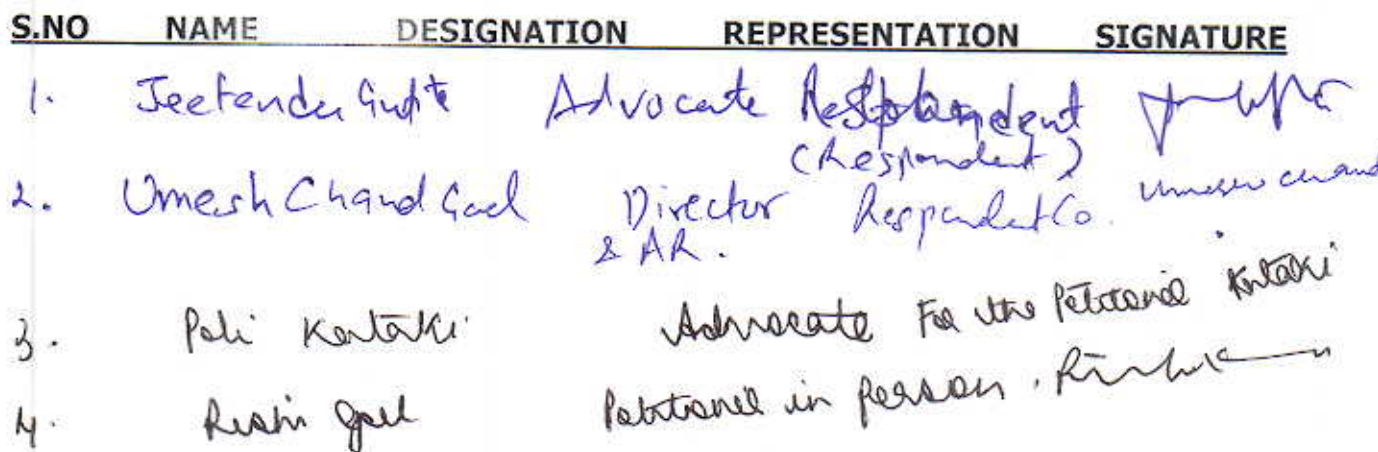 S.NO NAME DESIGNATION REPRESENTATION SIGNATURE
1. Jeetender Gupta Advocate Respondent
(Respondent)
2. Umesh Chand Goel Director Respondent Co. Umesh Chand
& AR.
3. Poli Kataki Advocate For the Petitioner Kataki
4. Rishi Goel Petitioner in person.